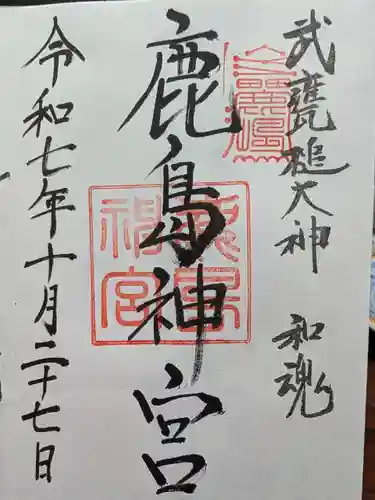 武甕槌大神 和魂
鹿島神宮
令和七年十月二十七日
鹿島神宮